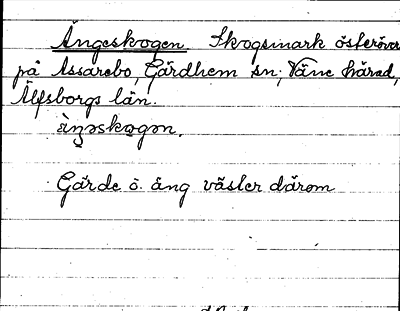 Ängeskogen Skogsmark österöver
på Assarebo, Gärdhem sn; Väne härad,
Älfsborgs län.
Gärde ö. äng väster därom